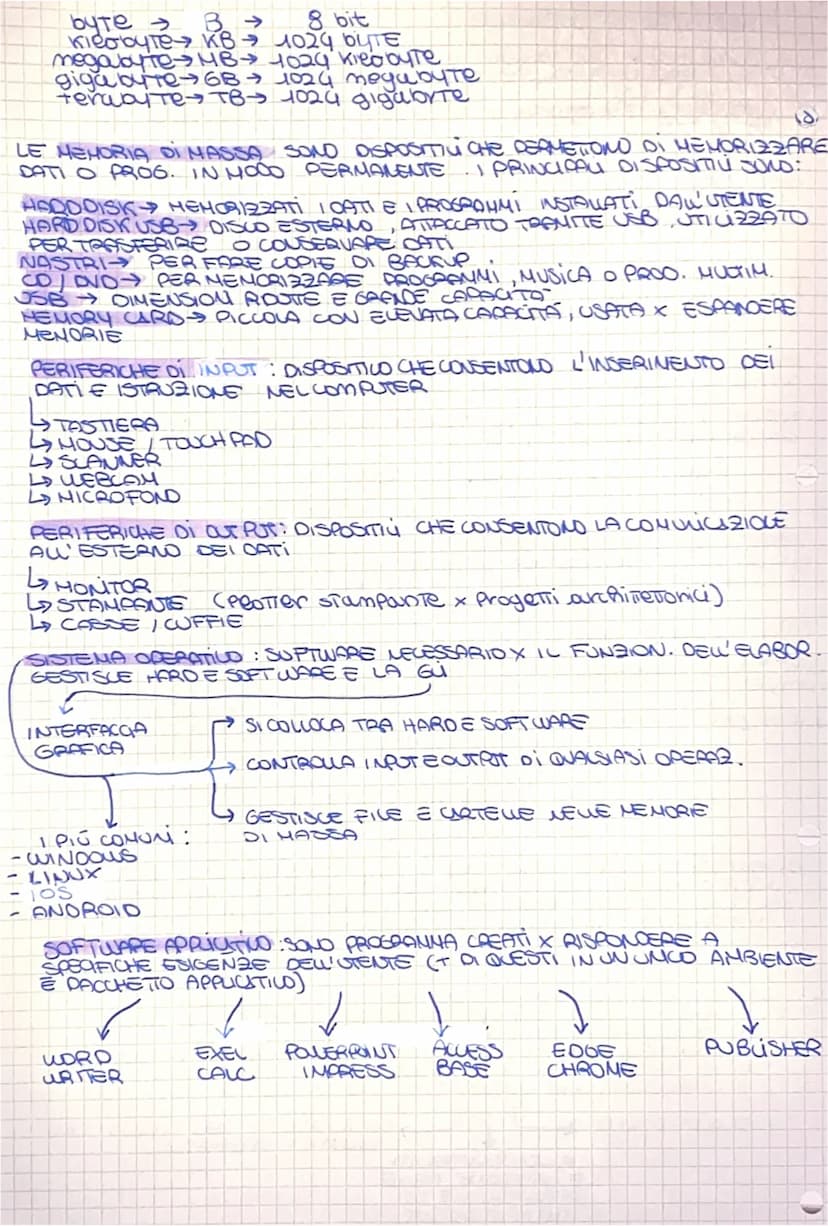 byte → B → 8 bit
kilobyte → KB → 1024 byte
megabyte → MB → 1024 kilobyte
gigabyte → GB → 1024 megabyte
terabyte → TB → 1024 gigabyte
LE MEMORIA DI MASSA SONO DISPOSITIVI CHE PERMETTONO DI MEMORIZZARE
DATI O PROG. IN MODO PERMANENTE. I PRINCIPALI DISPOSITIVI SONO:
HARD DISK → MEMORIZZATI I DATI E I PROGRAMMI INSTALLATI DALL'UTENTE
HARD DISK USB → DISCO ESTERNO, ATTACCATO TRAMITE USB, UTILIZZATO
PER TRASFERIRE O CONSERVARE DATI
NASTRI → PER FARE COPIE DI BACKUP.
CD / DVD → PER MEMORIZZARE PROGRAMMI, MUSICA O PROD. MULTIM.
USB → DIMENSIONI RIDOTTE E GRANDE CAPACITÀ
MEMORY CARD → PICCOLA CON ELEVATA CAPACITÁ, USATA x ESPANDERE
MEMORIE
PERIFERICHE DI INPUT : DISPOSITIVO CHE CONSENTONO L'INSERIMENTO DEI
DATI E ISTRUZIONE NEL COMPUTER
↳ TASTIERA
↳ MOUSE / TOUCHPAD
↳ SCANNER
↳ WEBCAM
↳ MICROFONO
PERIFERICHE DI OUTPUT: DISPOSITIVI CHE CONSENTONO LA COMUNICAZIONE
ALL'ESTERNO DEI DATI
↳ MONITOR
↳ STAMPANTE (plotter stampante x progetti architettonici)
↳ CASSE / CUFFIE
SISTEMA OPERATIVO : SOFTWARE NECESSARIO x IL FUNZION. DELL'ELABOR.
GESTISCE HARD E SOFTWARE E LA GUI
INTERFACCIA
GRAFICA
→ SI COLLOCA TRA HARD E SOFTWARE
→ CONTROLLA INPUT E OUTPUT DI QUALSIASI OPERAZ.
↳ GESTISCE FILE E CARTELLE NELLE MEMORIE
DI MASSA
I PIÚ COMUNI :
- WINDOWS
- LINUX
- iOS
- ANDROID
SOFTWARE APPLICATIVO : SONO PROGRAMMA CREATI x RISPONDERE A
SPECIFICHE ESIGENZE DELL'UTENTE (+ DI QUESTI IN UN UNICO AMBIENTE
È PACCHETTO APPLICATIVO)
WORD EXEL POWERPOINT ACCESS EDGE PUBLISHER
WRITER CALC IMPRESS BASE CHROME